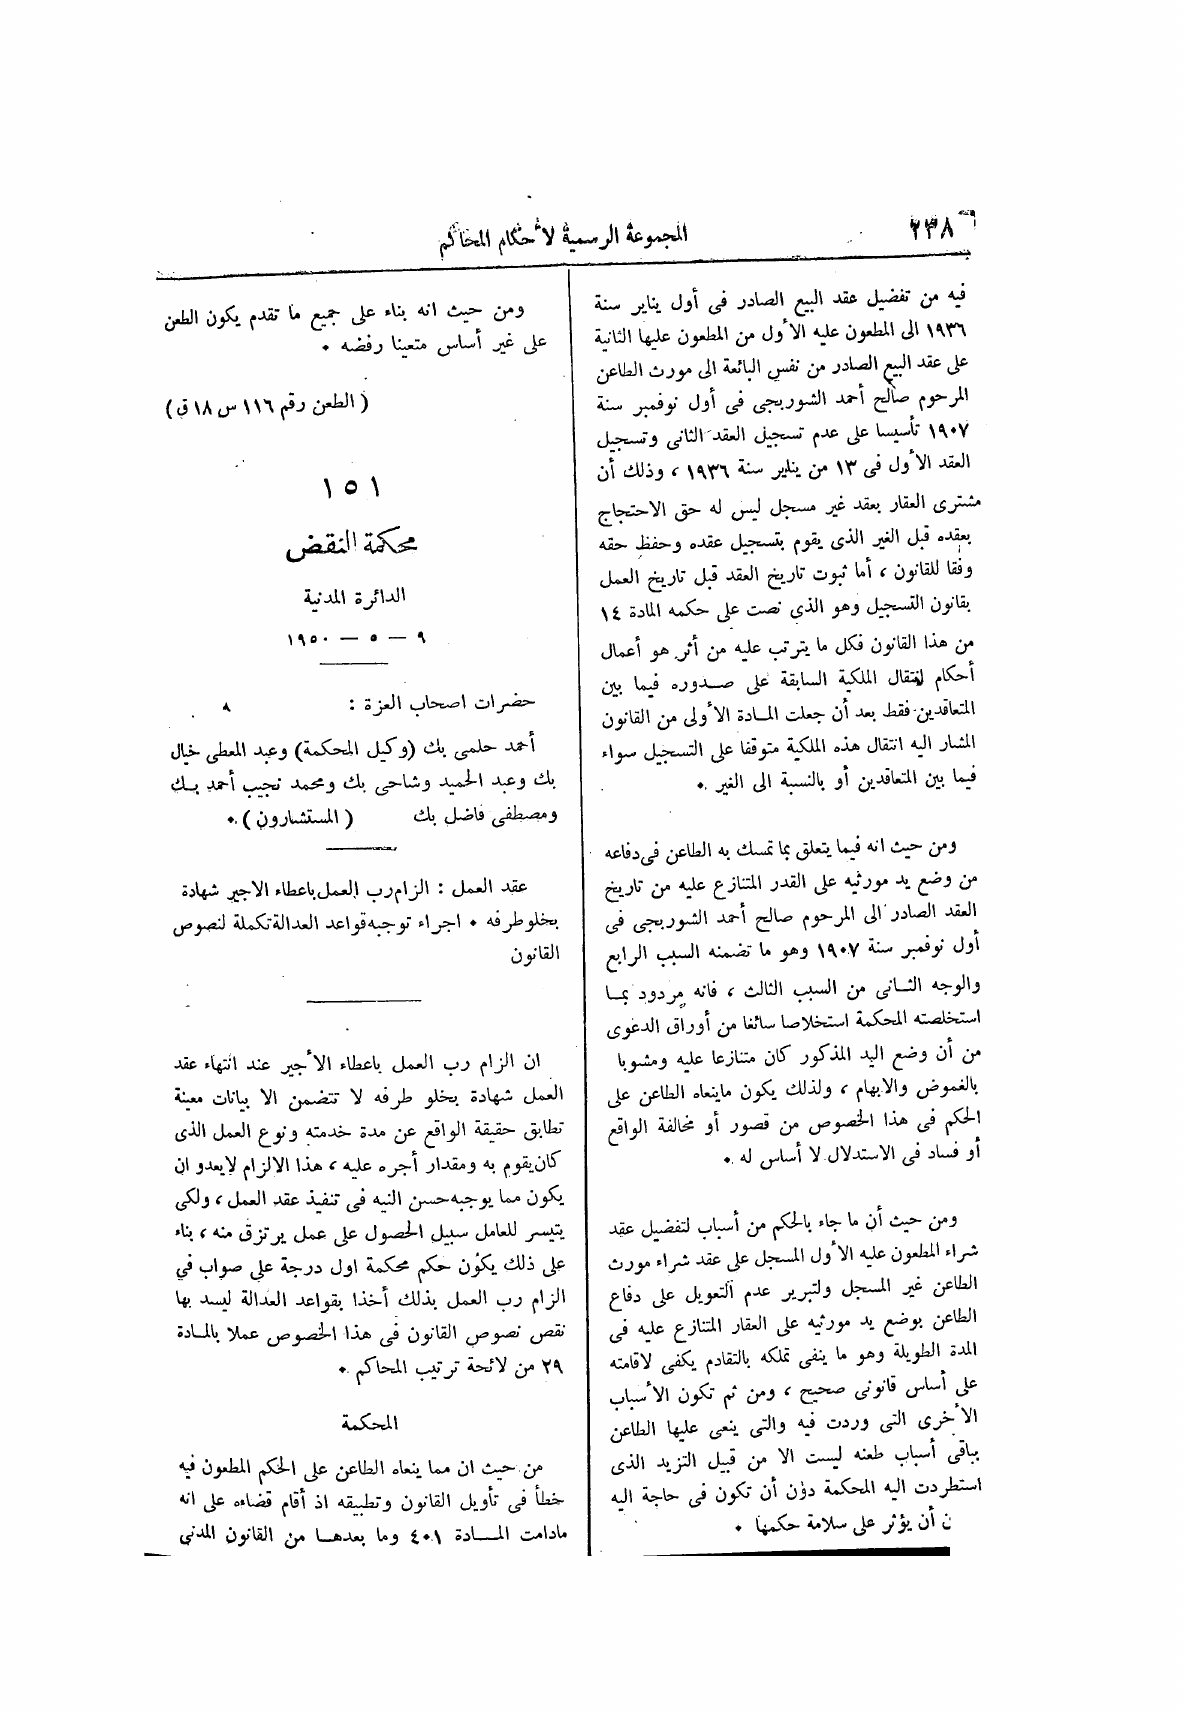 ٢٣٨
المجموعة الرسمية لأحكام المحاكم
فيه من تفضيل عقد البيع الصادر فى أول يناير سنة
١٩٣٦ الى المطعون عليه الأول من المطعون عليها الثانية
على عقد البيع الصادر من نفس البائعة الى مورث الطاعن
المرحوم صالح أحمد الشوربجى فى أول نوفمبر سنة
١٩٠٧ تأسيسا على عدم تسجيل العقد الثانى وتسجيل
العقد الأول فى ١٣ من يناير سنة ١٩٣٦ ، وذلك أن
مشترى العقار بعقد غير مسجل ليس له حق الاحتجاج
بعقده قبل الغير الذى يقوم بتسجيل عقده وحفظ حقه
وفقا للقانون ، أما ثبوت تاريخ العقد قبل تاريخ العمل
بقانون التسجيل وهو الذى نصت على حكمه المادة ١٤
من هذا القانون فكل ما يترتب عليه من أثر هو أعمال
أحكام انتقال الملكية السابقة على صدوره فيما بين
المتعاقدين فقط بعد أن جعلت المادة الأولى من القانون
المشار اليه انتقال هذه الملكية متوقفا على التسجيل سواء
فيما بين المتعاقدين أو بالنسبة الى الغير .
ومن حيث انه فيما يتعلق بما تمسك به الطاعن فى دفاعه
من وضع يد مورثيه على القدر المتنازع عليه من تاريخ
العقد الصادر الى المرحوم صالح أحمد الشوربجى فى
أول نوفمبر سنة ١٩٠٧ وهو ما تضمنه السبب الرابع
والوجه الثانى من السبب الثالث ، فانه مردود بما
استخلصته المحكمة استخلاصا سائغا من أوراق الدعوى
من أن وضع اليد المذكور كان متنازعا عليه ومشوبا
بالغموض والابهام ، ولذلك يكون ماينعاه الطاعن على
الحكم فى هذا الخصوص من قصور أو مخالفة الواقع
أو فساد فى الاستدلال لا أساس له .
ومن حيث أن ما جاء بالحكم من أسباب لتفضيل عقد
شراء المطعون عليه الأول المسجل على عقد شراء مورث
الطاعن غير المسجل ولتبرير عدم التعويل على دفاع
الطاعن بوضع يد مورثيه على العقار المتنازع عليه فى
المدة الطويلة وهو ما ينفى تملكه بالتقادم يكفى لاقامته
على أساس قانونى صحيح ، ومن ثم تكون الأسباب
الأخرى التى وردت فيه والتى ينعى عليها الطاعن
بباقى أسباب طعنه ليست الا من قبيل التزيد الذى
استطردت اليه المحكمة دون أن تكون فى حاجة اليه
ن أن يؤثر على سلامة حكمها .
ومن حيث انه بناء على جميع ما تقدم يكون الطعن
على غير أساس متعينا رفضه .
( الطعن رقم ١١٦ س ١٨ ق )
١٥١
محكمة النقض
الدائرة المدنية
٩ — ٥ — ١٩٥٠
حضرات اصحاب العزة :
أحمد حلمى بك (وكيل المحكمة) وعبد المعطى خيال
بك وعبد الحميد وشاحى بك ومحمد نجيب أحمد بك
ومصطفى فاضل بك ( المستشارون ) .
عقد العمل : الزام رب العمل باعطاء الاجير شهادة
بخلو طرفه . اجراء توجبه قواعد العدالة تكملة لنصوص
القانون
ان الزام رب العمل باعطاء الأجير عند انتهاء عقد
العمل شهادة بخلو طرفه لا تتضمن الا بيانات معينة
تطابق حقيقة الواقع عن مدة خدمته ونوع العمل الذى
كان يقوم به ومقدار أجره عليه ، هذا الالزام لا يعدو ان
يكون مما يوجبه حسن النيه فى تنفيذ عقد العمل ، ولكى
يتيسر للعامل سبيل الحصول على عمل يرتزق منه ، بناء
على ذلك يكون حكم محكمة اول درجة على صواب في
الزام رب العمل بذلك أخذا بقواعد العدالة ليسد بها
نقص نصوص القانون فى هذا الخصوص عملا بالمادة
٢٩ من لائحة ترتيب المحاكم .
المحكمة
من حيث ان مما ينعاه الطاعن على الحكم المطعون فيه
خطأ فى تأويل القانون وتطبيقه اذ أقام قضاءه على انه
مادامت المادة ٤٠١ وما بعدها من القانون المدنى